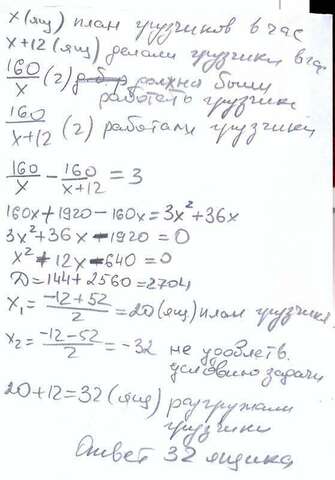 x (ящ) план грузчиков в час
x+12 (ящ) делали грузчики в час
160/x (г) должна были
работать грузчики
160/x+12 (г) работали грузчики
160/x - 160/x+12 = 3
160x+1920-160x=3x²+36x
3x²+36x-1920=0
x²+12x-640=0
D=144+2560=2704
x₁=-12+52/2=20(ящ)план грузчика
x₂=-12-52/2=-32 не удовлетв.
условию задачи
20+12=32(ящ) разгружали
грузчики
Ответ 32 ящика